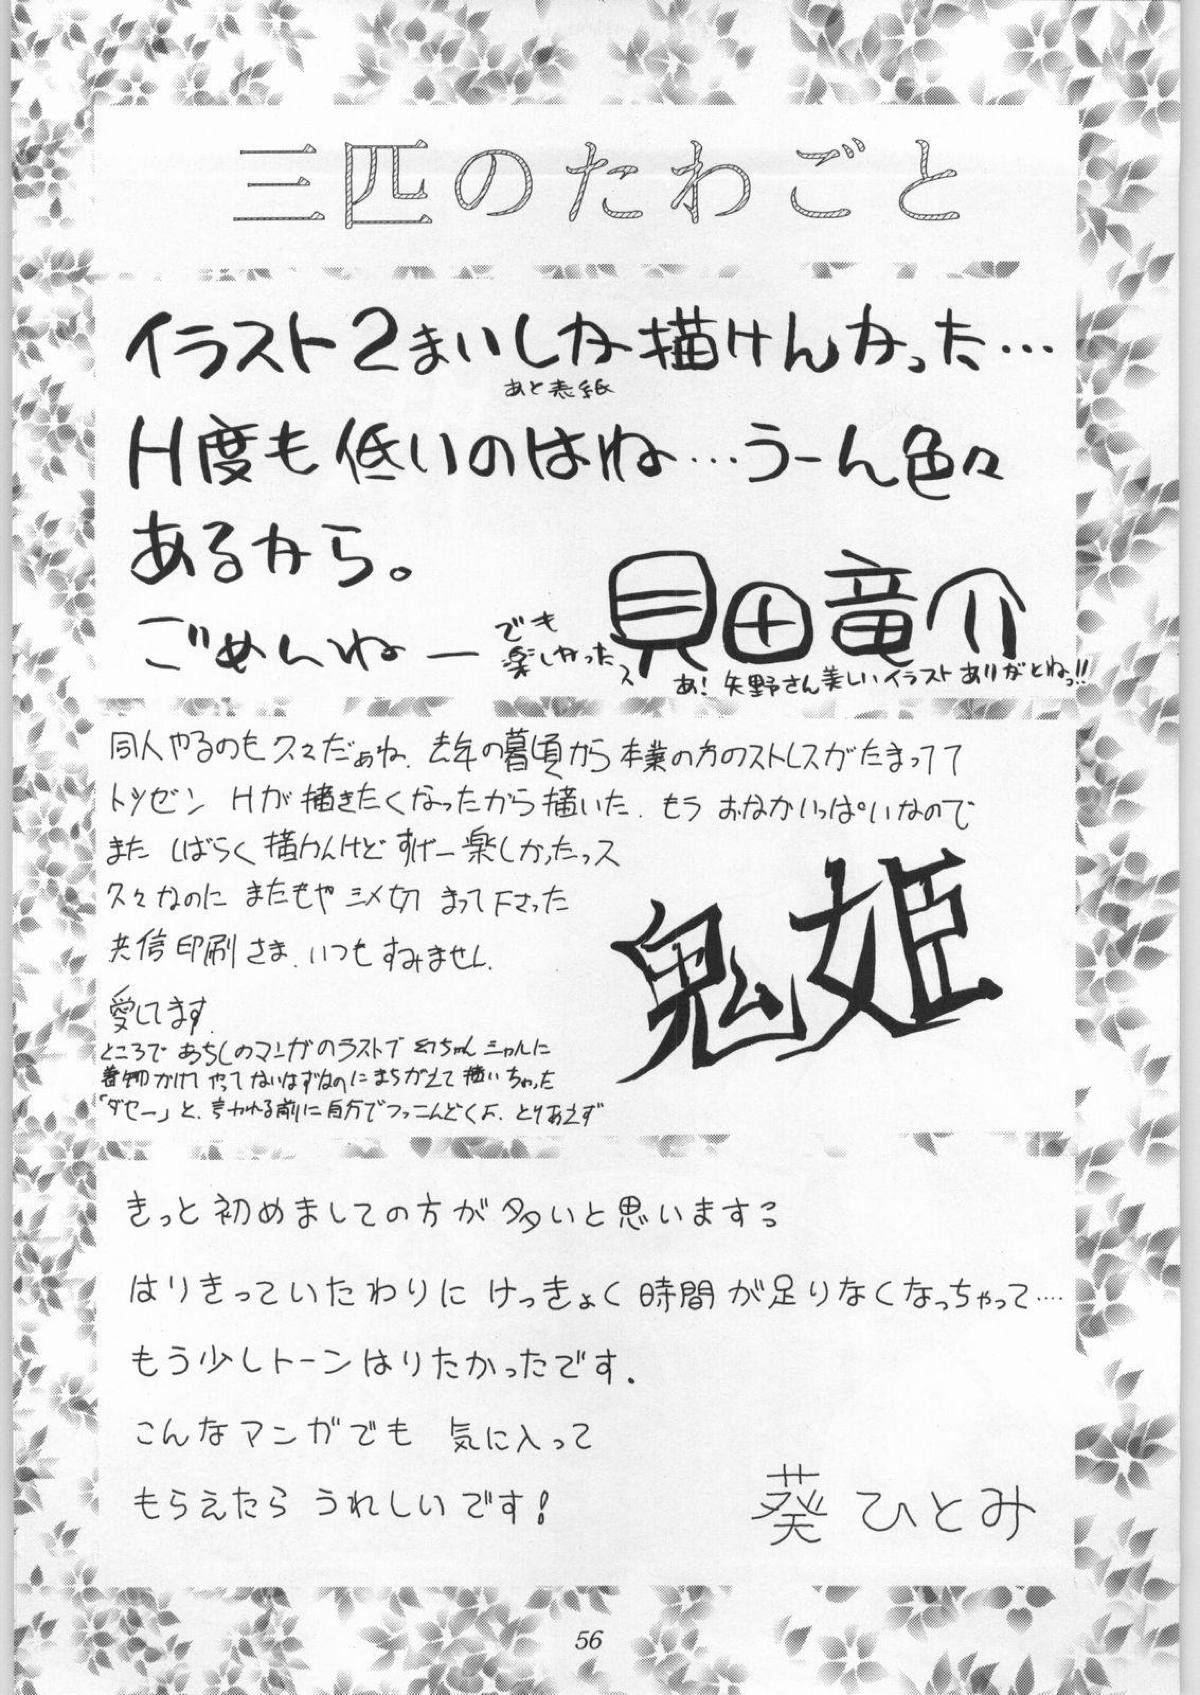 三匹のたわごと
イラスト2まいしか描けんかった…
あと表紙
H度も低いのはね…うーん色々
あるから。
ごめんねー
でも
楽しかったっス
貝田竜介
あ!矢野さん美しいイラストありがとねっ!!
同人やるのも久々だぁね。去年の暮頃から本業の方のストレスがたまってて
トツゼン Hが描きたくなったから描いた。もう おなかいっぱいなので
また しばらく描かんけど すげー楽しかったっス
久々なのに またもや シメ切 まって下さった
共信印刷さま、いつもすみません。
愛してます。
ところで あちしのマンガのラストで 幻ちゃん シャルに
着物 かけて やってないはずなのに まちがえて 描いちゃった
「ダセー」と、言われる前に自分でつっこんどくよ、とりあえず
鬼姫
きっと初めましての方が多いと思いますっ
はりきっていたわりに けっきょく 時間が足りなくなっちゃって‥‥
もう少しトーンはりたかったです。
こんなマンガでも 気に入って
もらえたら うれしいです!
葵ひとみ
56